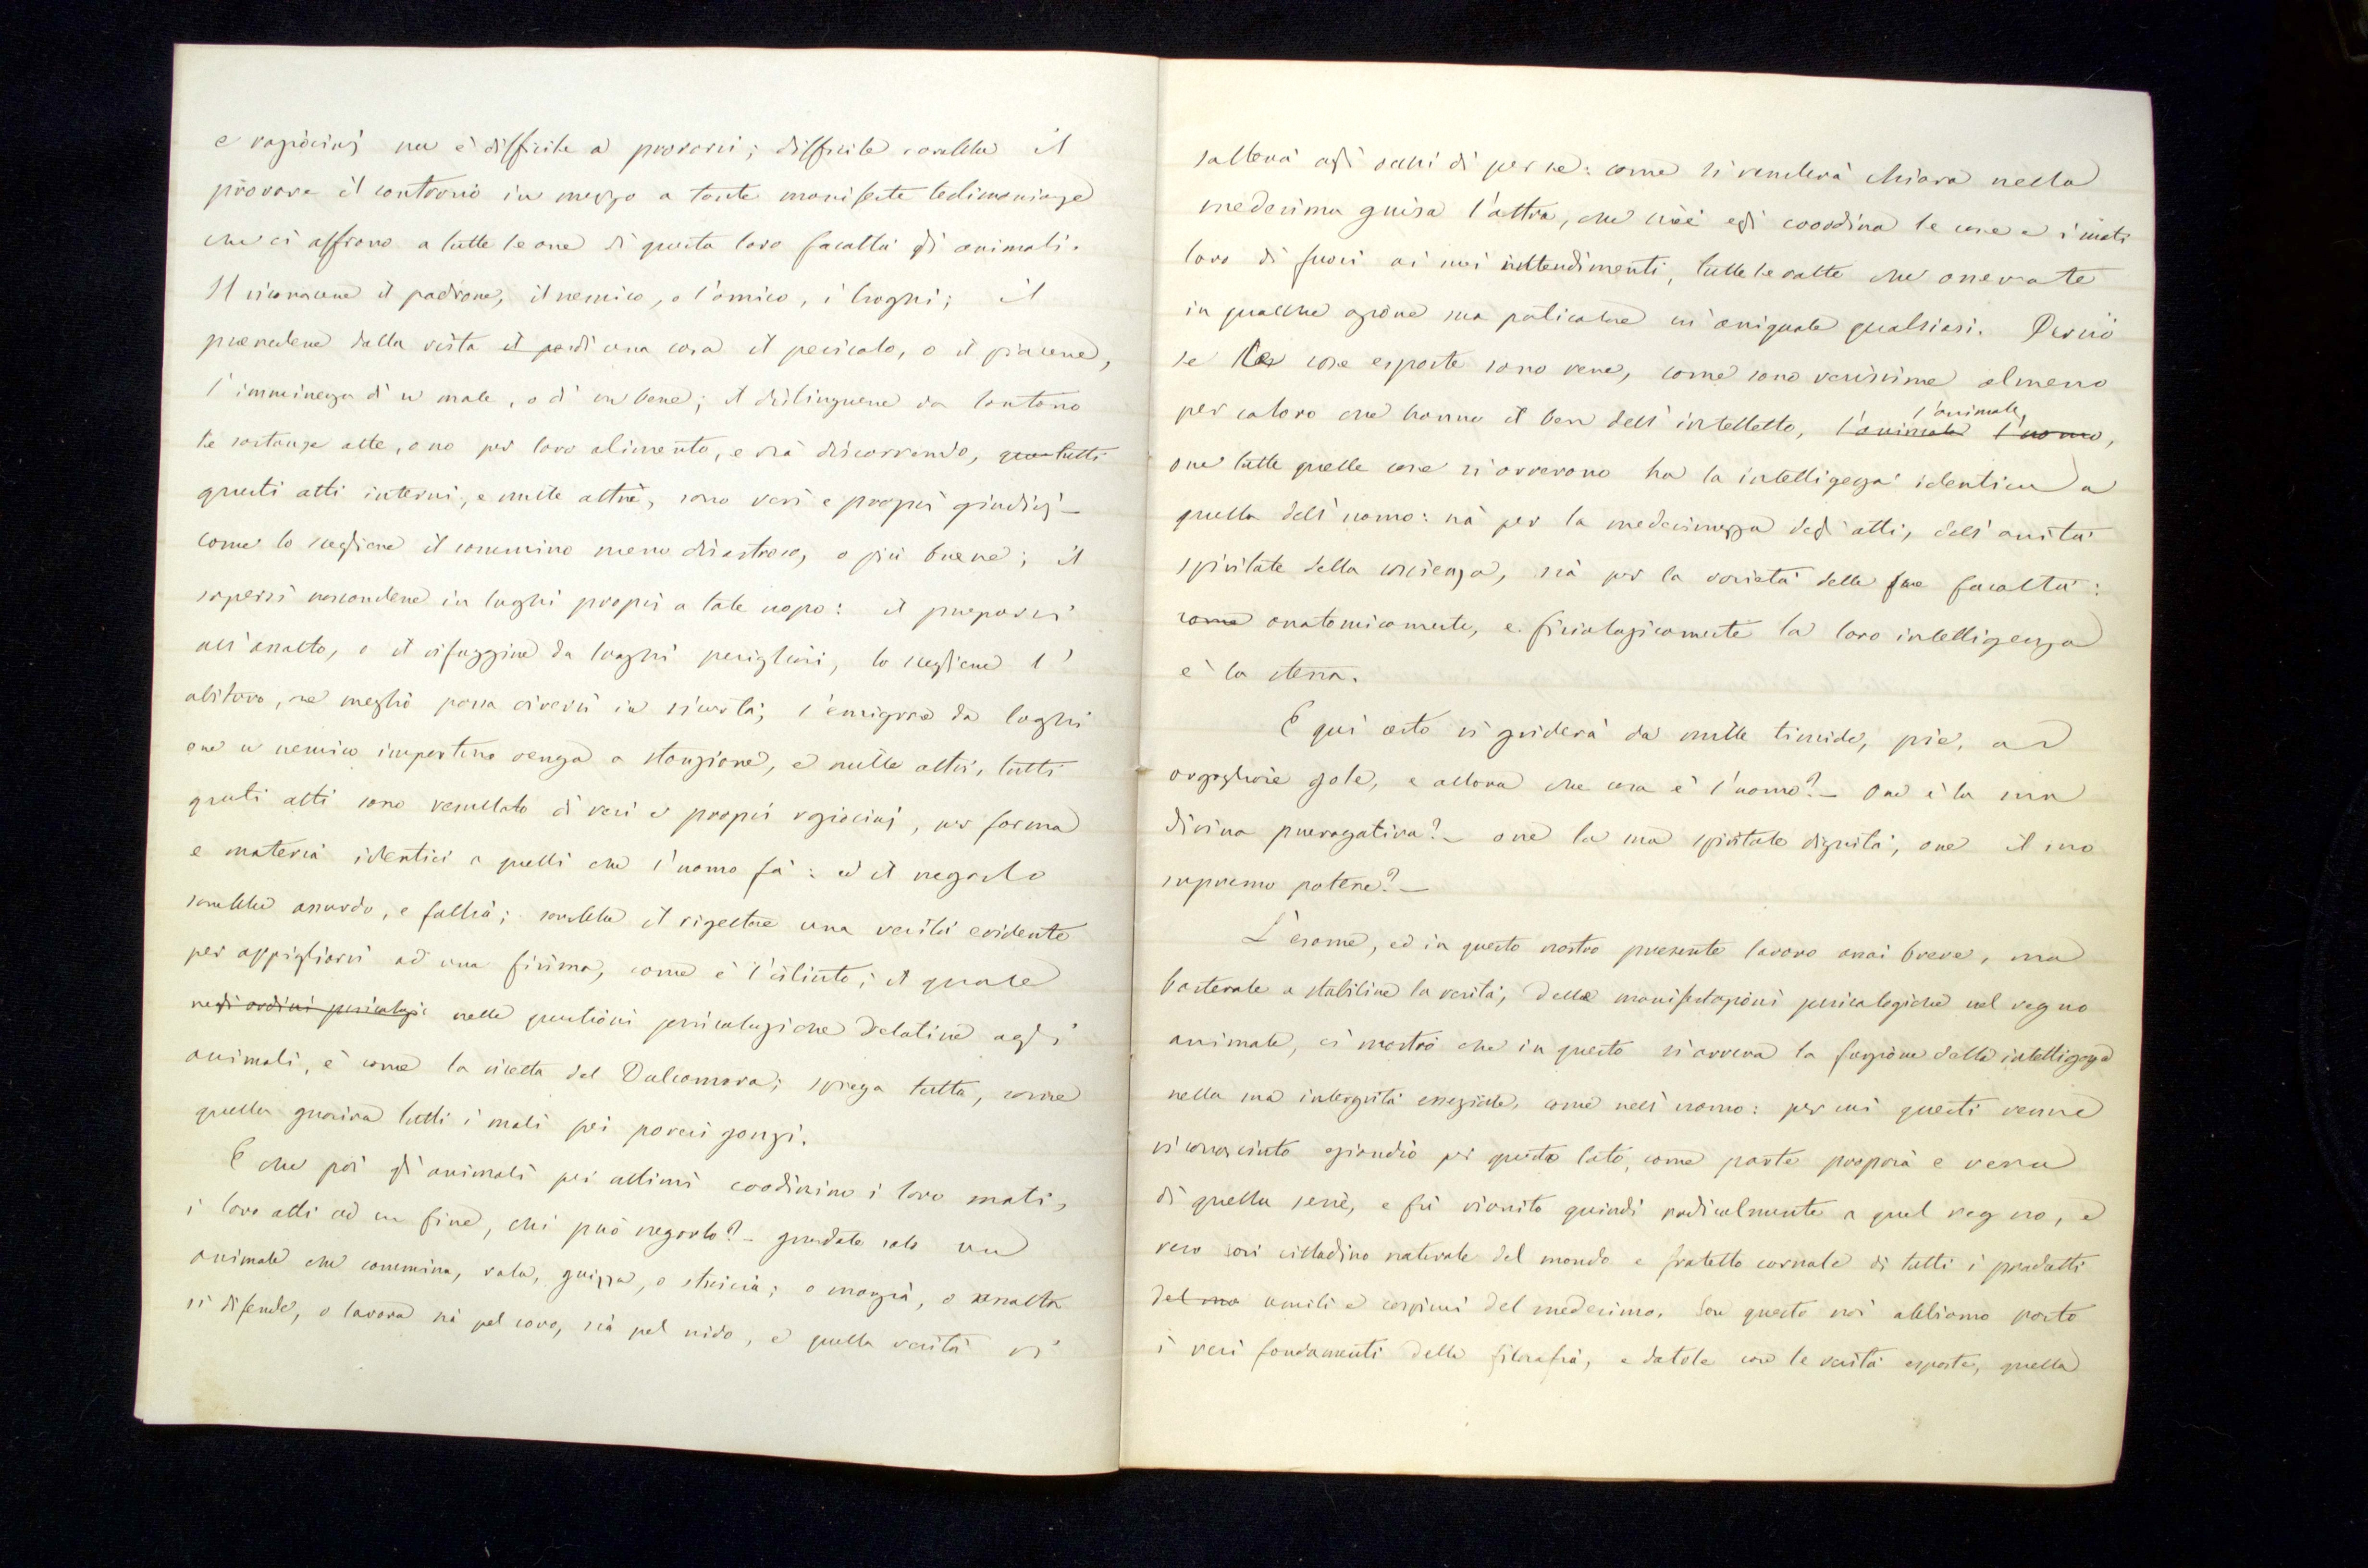 e raziocinj non è difficile a provarsi; difficile sarebbe il
provare il contrario in mezzo a tante manifeste testimonianze
che ci offrono a tutte le ore di questa loro facoltà gli animali.
Il riconoscere il padrone, il nemico, o l'amico, i luoghi; il
prevedere dalla vista di una cosa il pericolo, o il piacere,
l'imminenza di un male, o di un bene; il distinguere da lontano
le sostanze atte, o no per loro alimento, e via discorrendo, tutti
questi atti interni, e mille altri, sono veri e proprj giudizj –
come lo scegliere il cammino meno disastroso, o più breve; il
sapersi nascondere in luoghi proprj a tale uopo: il prepararsi
all'assalto, o il rifuggire da luoghi perigliosi, lo scegliere l'
abituro, se meglio possa viversi in sicurtà; l'emigrare da luoghi
ove un nemico importuno venga a stanziare, e mille altri, tutti
questi atti sono resultato di veri e proprj raziocinj, per forma
e materia identici a quelli che l'uomo fa: ed il negarlo
sarebbe assurdo, e follia; sarebbe il rigettare una verità evidente
per appigliarsi ad una fisima, come è l'istinto; il quale
negli ordini psicologi nelle questioni psicologiche relative agli
animali, è come la ricetta del Dulcamara; spiega tutto, come
quella guariva tutti i mali pei poveri gonzi.
E che poi gli animali per ultimo coordinino i loro moti,
i loro atti ad un fine, chi può negarlo? – guardate solo un
animale che cammina, vola, guizza, o striscia; o mangia, o assalta
si difende, o lavora sia pel covo, sia pel nido, e quella verità vi
salterà agli occhi di per se: come si renderà chiara nella
medesima guisa l'altra, che cioè egli coordina le cose e i moti
loro di fuori ai suoi intendimenti, tutte le volte che osservate
in qualche azione sua particolare un animale qualsiasi. Perciò
se le cose esposte sono vere, come sono verissime almeno
per coloro che hanno il ben dell'intelletto, l'animale l'uomo,
l'animale,
ove tutte quelle cose si avverano ha la intelligenza identica a
quella dell'uomo: sia per la medesimezza degli atti, dell'unità
spiritale della coscienza, sia per la varietà delle sue facoltà:
come anatomicamente, e fisiologicamente la loro intelligenza
è la stessa.
E qui certo si griderà da mille timide, pie, ed
orgogliose gole, e allora che cosa è l'uomo? – Ove è la sua
divina prerogativa? – ove la sua spiritale dignità, ove il suo
supremo potere? –
L'esame, ed in questo nostro presente lavoro assai breve, ma
bastevole a stabilire la verità, delle manifestazioni psicologiche nel regno
animale, ci mostrò che in questo si avvera la funzione della intelligenza
nella sua integrità essenziale, come nell'uomo: per cui questi venne
riconosciuto eziandio per questo lato, come parte propria e vera
di quella serie, e fu riunito quindi radicalmente a quel regno, e
reso così cittadino naturale del mondo e fratello carnale di tutti i prodotti
del suo umili e cospicui del medesimo. Con questo noi abbiamo posto
i veri fondamenti della filosofia, e datole con le verità esposte, quella